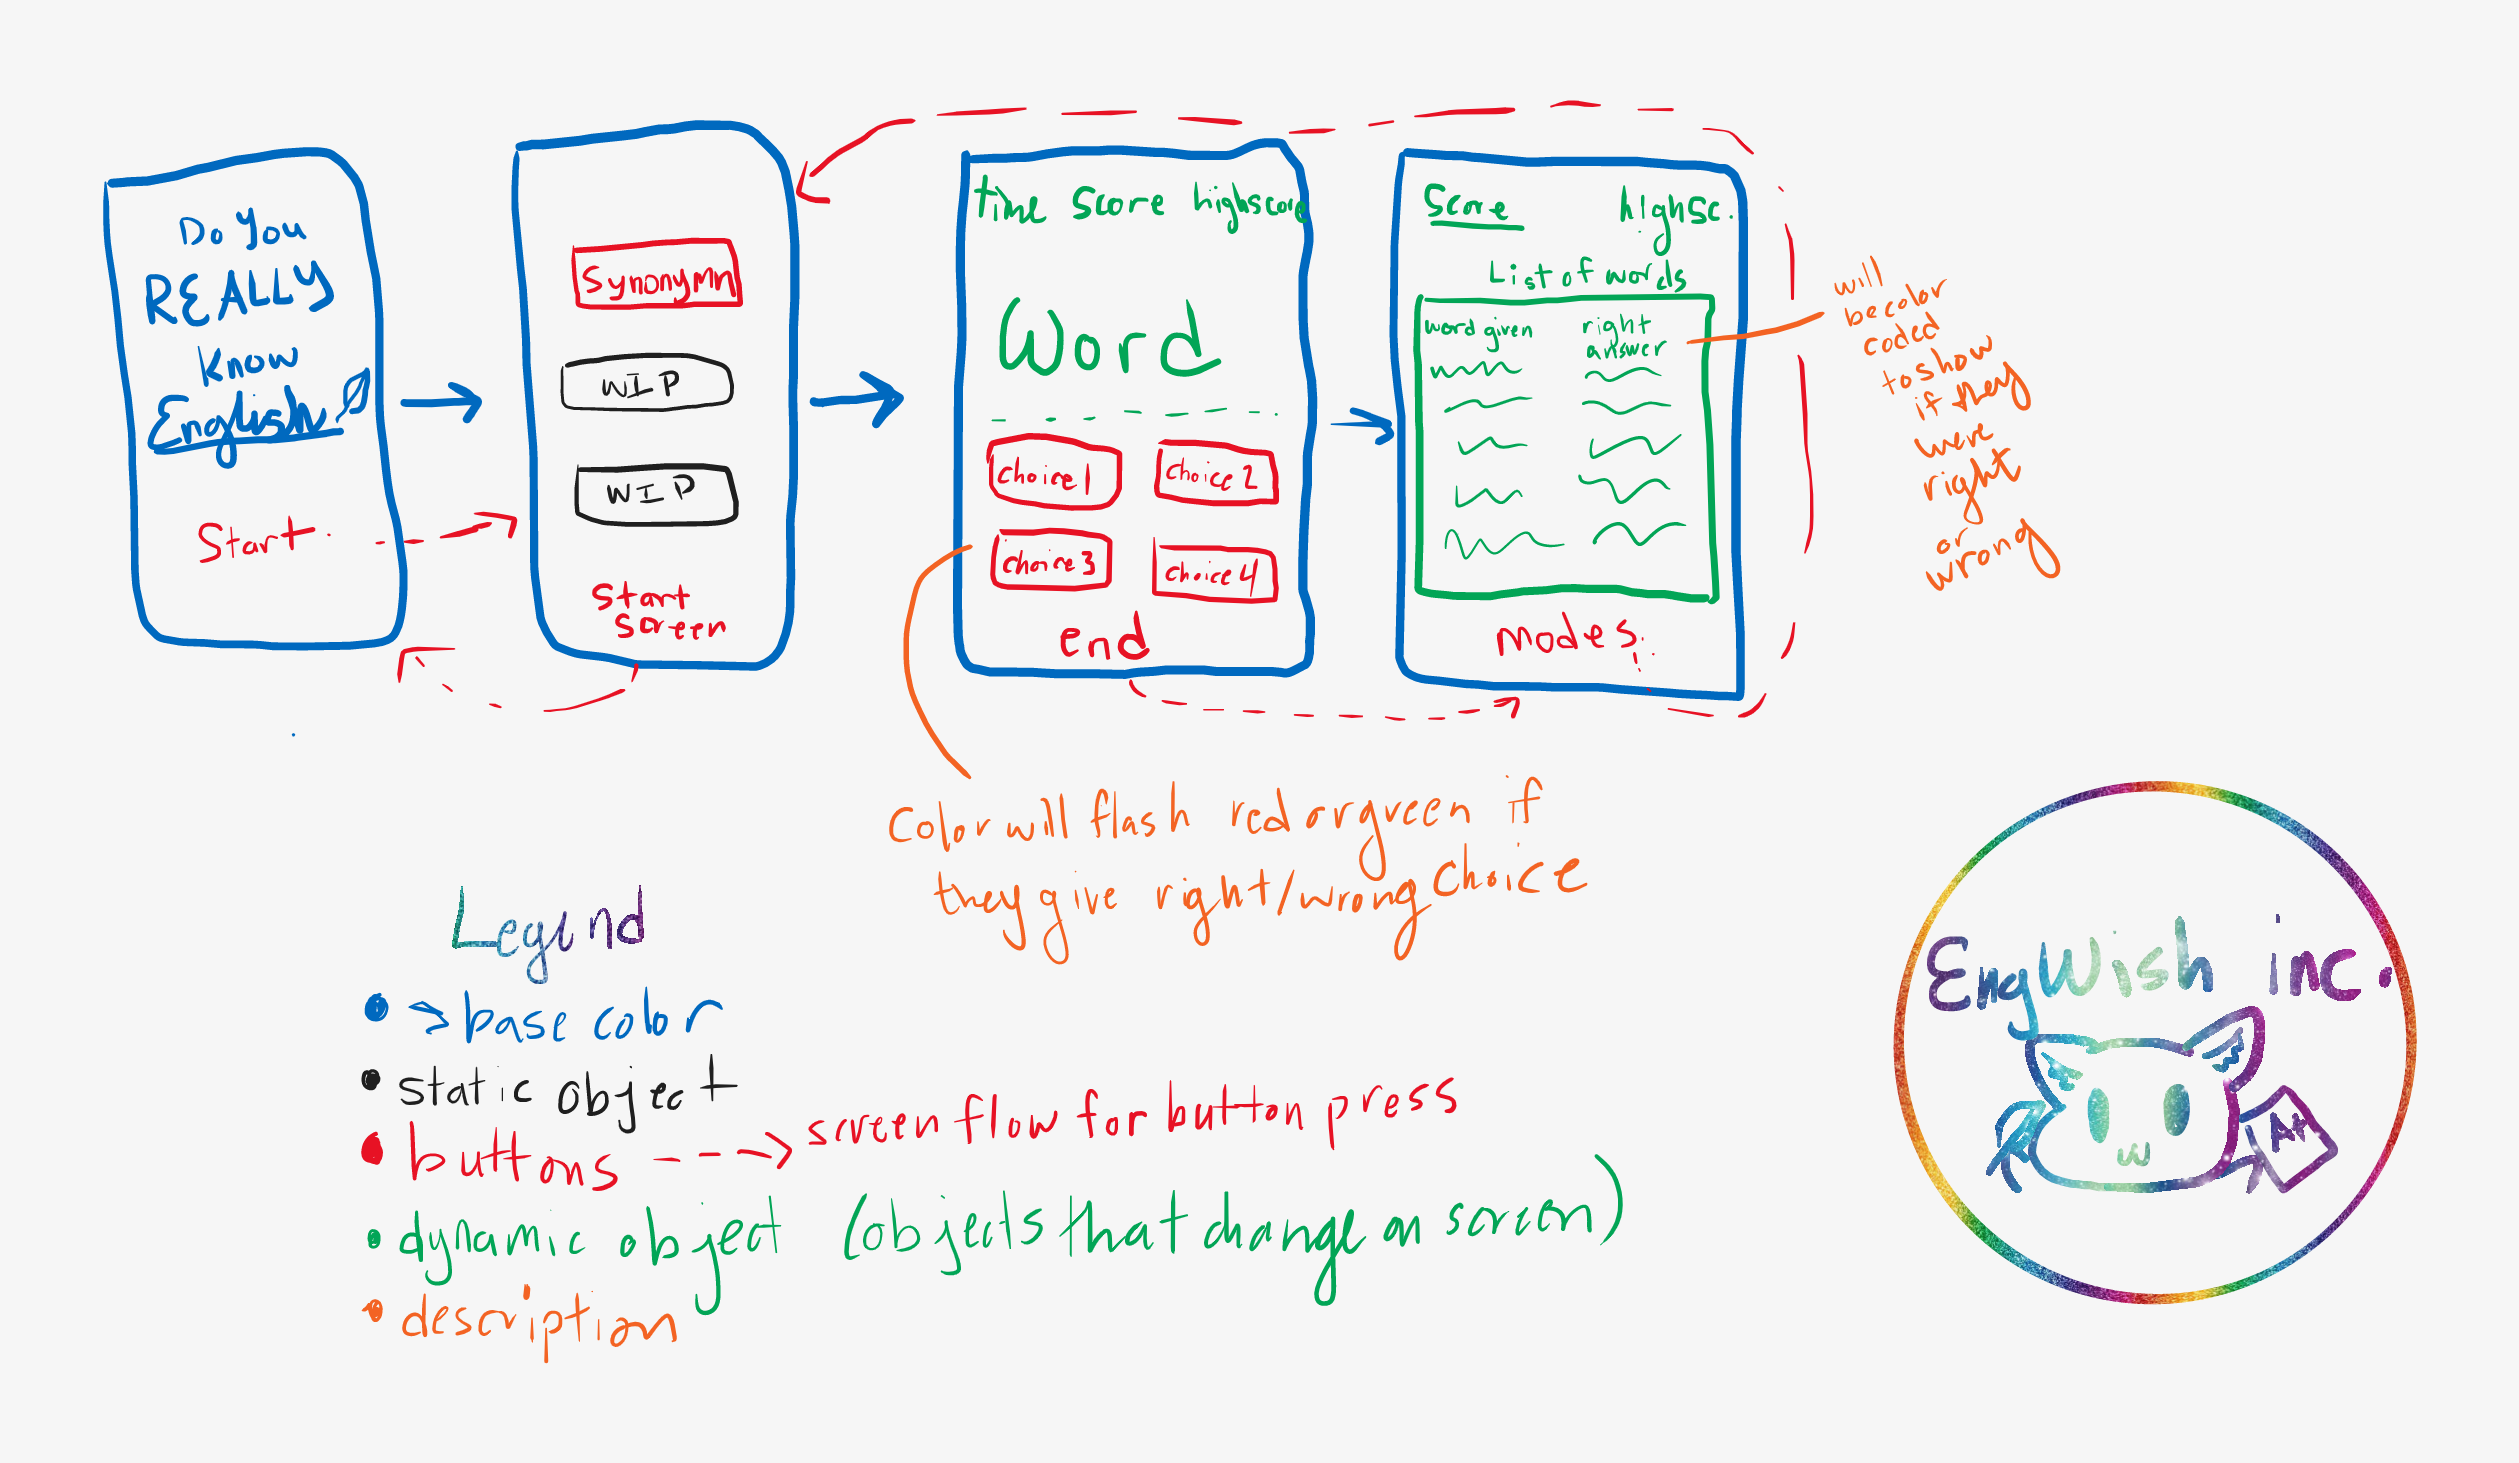 Do you
REALLY
know
English
Start.
Synonymn
WIP
WIP
Start
Screen
time score highscore
Word
choice 1
choice 2
choice 3
choice 4
end
Score
highsc.
List of words
word given
right
answer
Modes
will
be color
coded
to show
if they
were
right
or
wrong
Color will flash red or green if
they give right/wrong choice
Legend
base color
static object
buttons ---> screen flow for button press
dynamic object (objects that change on screen)
description
EngWish inc.